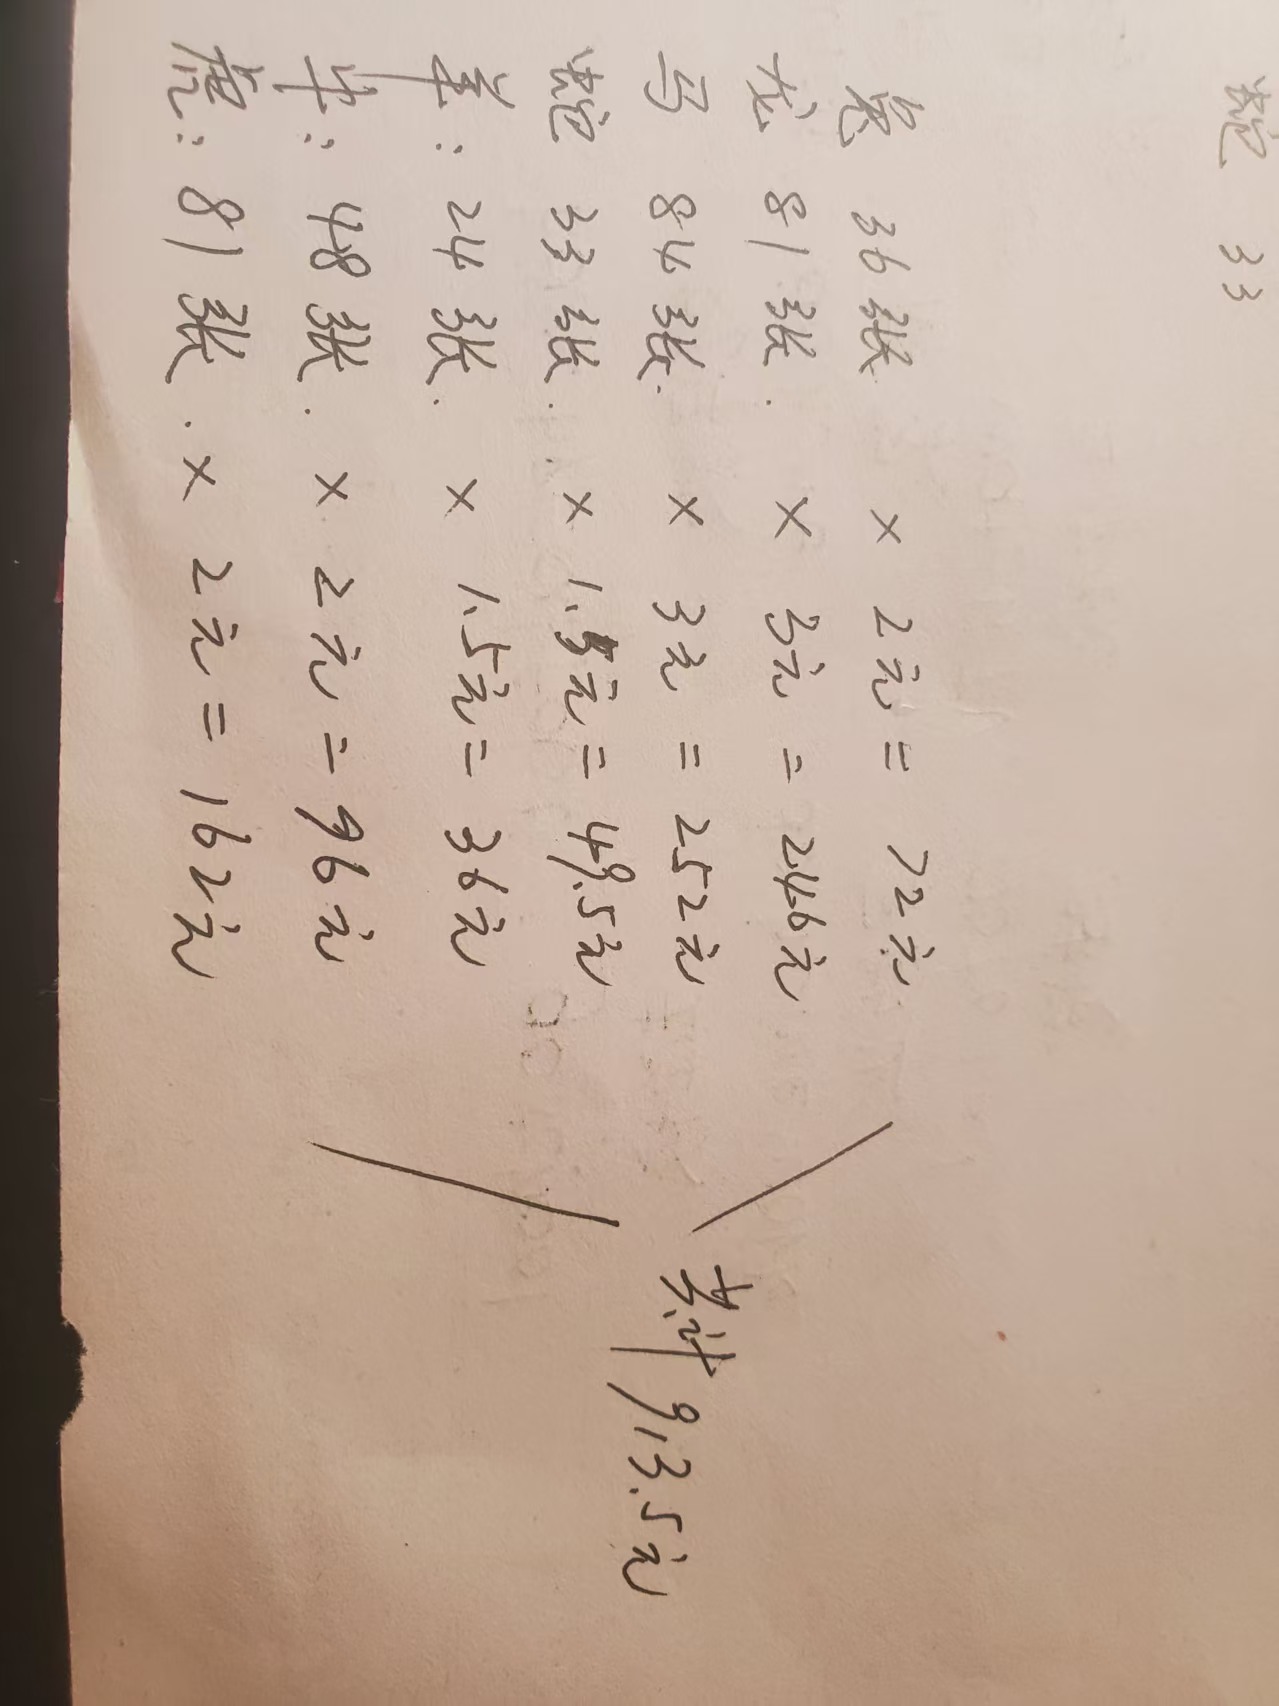 蛇 33
兔 36张 × 2元 = 72元
龙 81张. × 3元 = 246元
马 84张. × 3元 = 252元
蛇 33张. × 1.5元 = 49.5元
羊: 24张. × 1.5元 = 36元
牛: 48张. × 2元 = 96元
虎: 81张. × 2元 = 162元
共计 913.5元